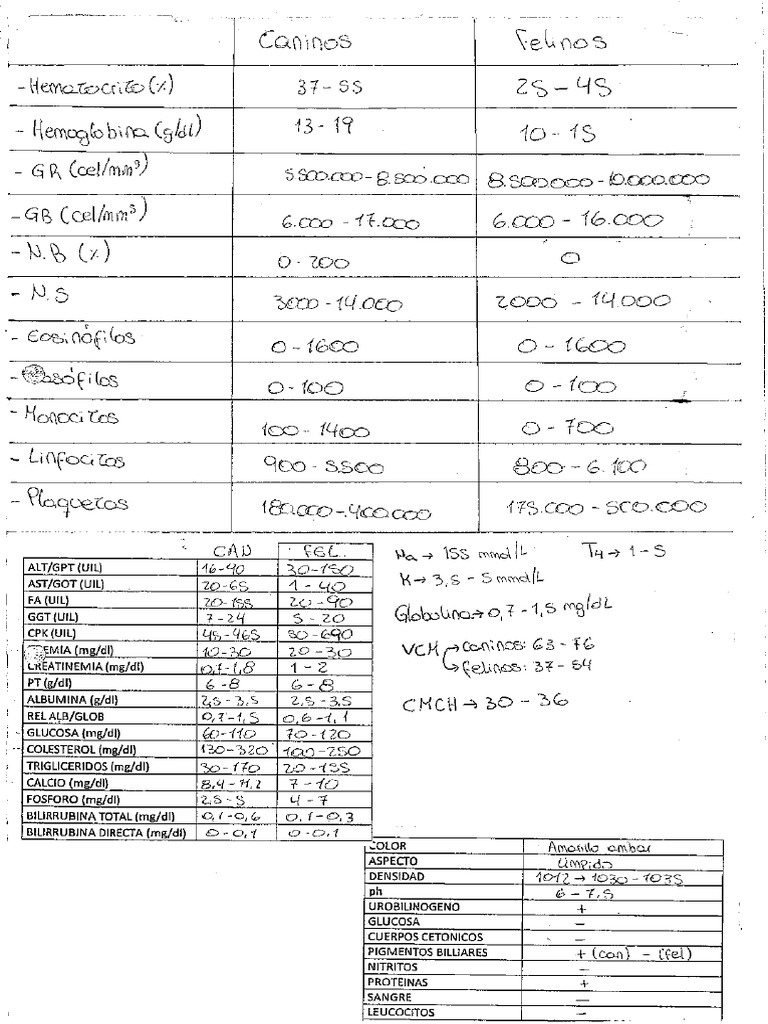 Caninos Felinos
- Hematocrito (%) 37 - 55 25 - 45
- Hemoglobina (g/dl) 13 - 19 10 - 15
- GR (cel/mm³) 5500.000 - 8.500.000 8.500.000 - 10.000.000
- GB (cel/mm³) 6.000 - 17.000 6.000 - 16.000
- N.B (%) 0 - 200 0
- N.S 3000 - 14.000 2000 - 14.000
- Eosinófilos 0 - 1600 0 - 1600
- Basófilos 0 - 100 0 - 100
- Monocitos 100 - 1400 0 - 700
- Linfocitos 900 - 5500 800 - 6.100
- Plaquetas 180.000 - 400.000 175.000 - 500.000
CAN FEL.
ALT/GPT (UIL) 16 - 90 30 - 150
AST/GOT (UIL) 20 - 65 1 - 40
FA (UIL) 20 - 155 20 - 90
GGT (UIL) 7 - 24 5 - 20
CPK (UIL) 45 - 465 50 - 690
EMIA (mg/dl) 10 - 30 20 - 30
CREATINEMIA (mg/dl) 0,7 - 1,8 1 - 2
PT (g/dl) 6 - 8 6 - 8
ALBUMINA (g/dl) 2,5 - 3,5 2,5 - 3,5
REL ALB/GLOB 0,7 - 1,5 0,6 - 1,1
GLUCOSA (mg/dl) 60 - 110 70 - 120
COLESTEROL (mg/dl) 130 - 320 100 - 250
TRIGLICERIDOS (mg/dl) 30 - 170 20 - 155
CALCIO (mg/dl) 8,4 - 11,2 7 - 10
FOSFORO (mg/dl) 2,5 - 5 4 - 7
BILIRRUBINA TOTAL (mg/dl) 0,1 - 0,6 0,1 - 0,3
BILIRRUBINA DIRECTA (mg/dl) 0 - 0,1 0 - 0,1
Na → 155 mmol/L T4 → 1 - 5
K → 3,5 - 5 mmol/L
Globulina → 0,7 - 1,5 mg/dL
VCM → caninos: 63 - 76
→ felinos: 37 - 54
CMCH → 30 - 36
COLOR Amarillo ambar
ASPECTO Límpido
DENSIDAD 1012 → 1030 - 1035
ph 6 - 7,5
UROBILINOGENO +
GLUCOSA -
CUERPOS CETONICOS -
PIGMENTOS BILLIARES + (can) - (fel)
NITRITOS -
PROTEINAS +
SANGRE -
LEUCOCITOS -